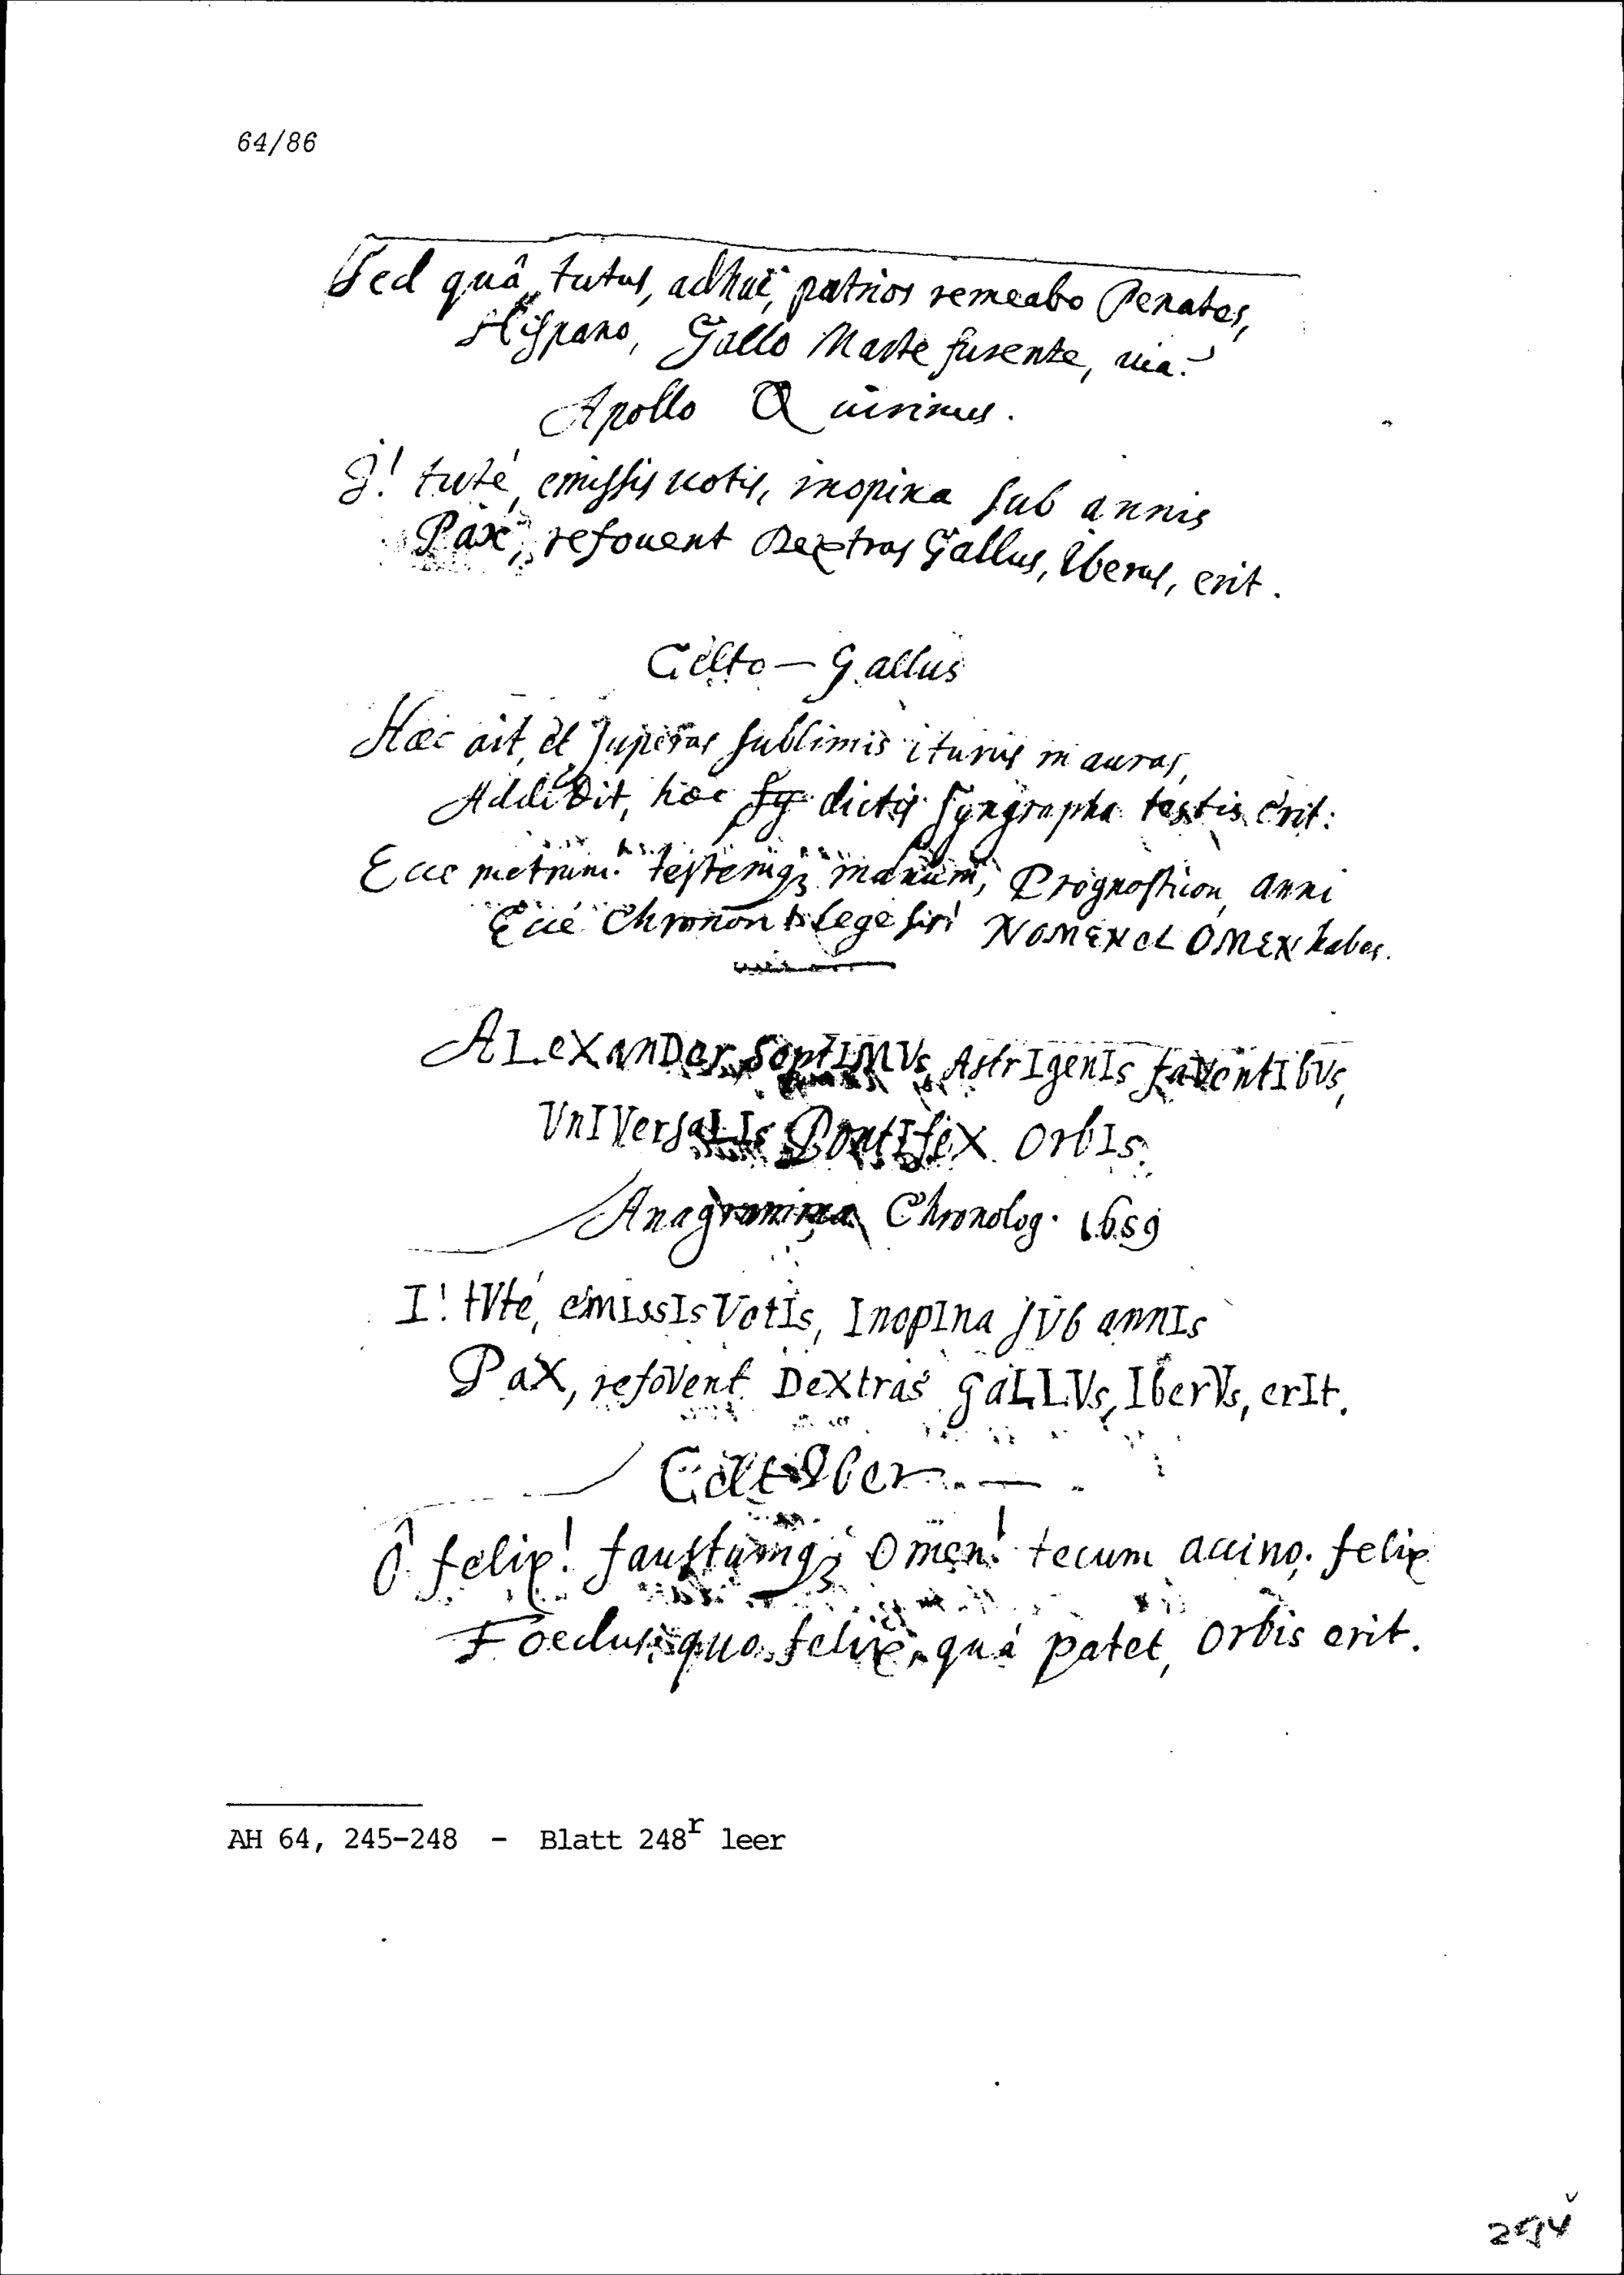 64/86
Sed quâ, tutus, adhuc, patrios remeabo Penates,
Hispano, Gallo Marte furente, uia?
Apollo Quirinus.
I! tuté, emissis uotis, inopina sub annis
Pax, refouent Dextras Gallus, Iberus, erit.
Celto-Gallus
Hæc ait, et Superas sublimis iturus in auras,
Addidit, hæc sy dictis syngrapha testis erit:
Ecce metrum testemqz manum, Prognosticon anni
Ecce Chronon lege NOMEN et OMEN habes.
ALeXanDer SeptIMVs, AstrIgenIs faVentIbVs,
VnIVersaLIs PontIfeX OrbIs.
Anagramma Chronolog. 1659
I! tVté, emIssIs VotIs, InopIna sVb annIs
PaX, refoVent DeXtras GaLLVs, IberVs, erIt.
CeltIber.
Ô felix! faustumqz Omen! tecum accino. felix
Foedus, quo felix, quá patet, Orbis erit.
AH 64, 245-248 - Blatt 248r leer
294v